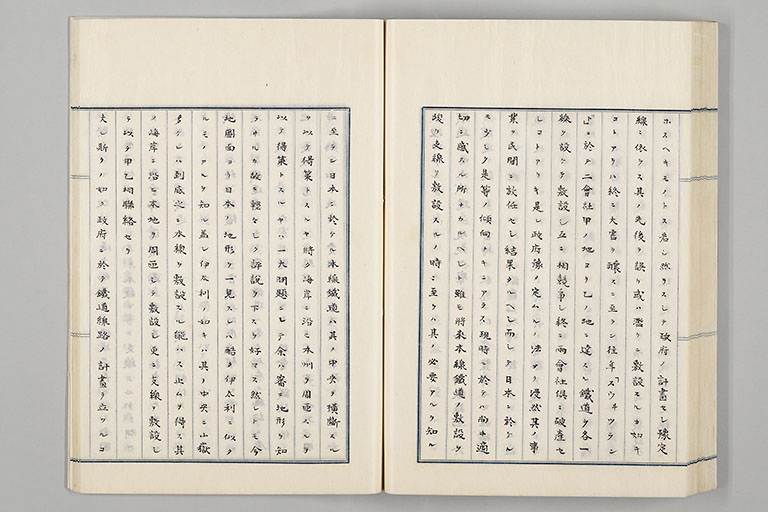 ホスヘキモノトス若シ然ラスシテ政府ノ計畫セシ豫定
線ニ依ラス其ノ先後ヲ誤リ或ハ濫リニ敷設スルカ如キ
コトアラハ終ニ大害ヲ醸スニ至ラン往年「スウヰツツラン
ド」ニ於テ二會社甲ノ地ヨリ乙ノ地ニ達スル鐵道ヲ各一
線ヲ設ケテ敷設シ互ニ相競爭シ終ニ兩會社倶ニ破産セ
シコトアリキ是レ政府豫メ定ムルノ法ナク漫然其ノ事
業ヲ民間ニ放任セシ結果タルヘシ而シテ日本ニ於ケル
モ少シク是等ノ傾向ナキニアラス現時ニ於テハ尚ホ適
切ニ感スル所ナカルヘシト雖モ將來本線鐵道ノ敷設ヲ
竣リ支線ヲ敷設スルノ時ニ至ラハ其ノ必要アルヲ知ル
ニ至ラン日本ニ於ケル本線鐵道ハ其ノ中央ヲ横斷スル
ヲ以テ得策トスルヤ將タ海岸ニ沿ヒ本州ヲ周匝スル
以テ得策トスルヤハ一大問題ニシテ余ハ審ニ地形ヲ知
ラサルカ故ニ輕々シク評説ヲ下スヲ好マス然レトモ今
地圖面ヨリ日本ノ地形ヲ一見スレハ酷タ伊太利ニ似タ
ルモノアルヲ知ル蓋シ伊太利ノ如キハ其ノ中央ニ山嶽
多ケレハ到底之ニ本線ヲ敷設スル能ハス止ムヲ得ス其
ノ海岸ニ沿ヒ本地ヲ周匝シテ敷設シ更ニ支線ヲ敷設シ
テ以テ甲乙相聯絡セリ
夫レ斯クノ如ク政府ニ於テ鐵道線路ノ計畫ヲ立ツルコ